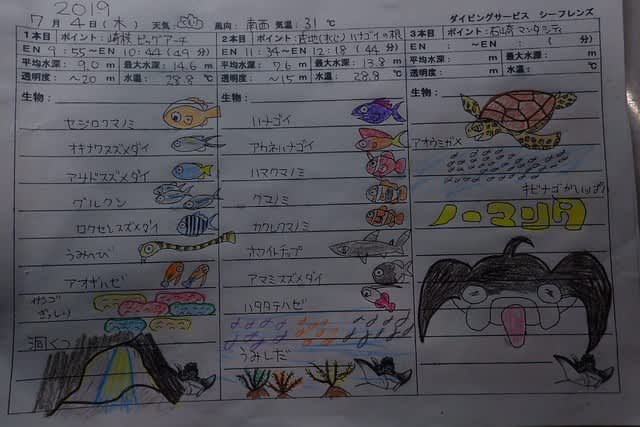 2019
7月 4日(木) 天気 風向: 南西 気温: 31℃ ダイビングサービス シーフレンズ
1本目 ポイント: 崎枝ビッグアーチ
EN 9:55~EN 10:44 (49分)
平均水深: 9.0m 最大水深: 14.6m
透明度: ~20m 水温: 28.8℃
生物:
セジロクマノミ
オキナワスズメダイ
アサドスズメダイ
グルクン
ロクセンスズメダイ
うみへび
アオギハゼ
サンゴ
ぎっしり
洞くつ
2本目 ポイント: ハナゴイの根
EN 11:34~EN 12:18 (44分)
平均水深: 7.6m 最大水深: 13.8m
透明度: ~15m 水温: 28.8℃
生物:
ハナゴイ
アカネハナゴイ
ハマクマノミ
クマノミ
カクレクマノミ
ホワイトチップ
アマミスズメダイ
ハタタテハゼ
うみしだ
3本目 ポイント: 石崎マンタシティ
EN : ~EN : ( 分)
平均水深: m 最大水深: m
透明度: m 水温: ℃
生物:
アオウミガメ
キビナゴがいっぱい
ノーマンタ